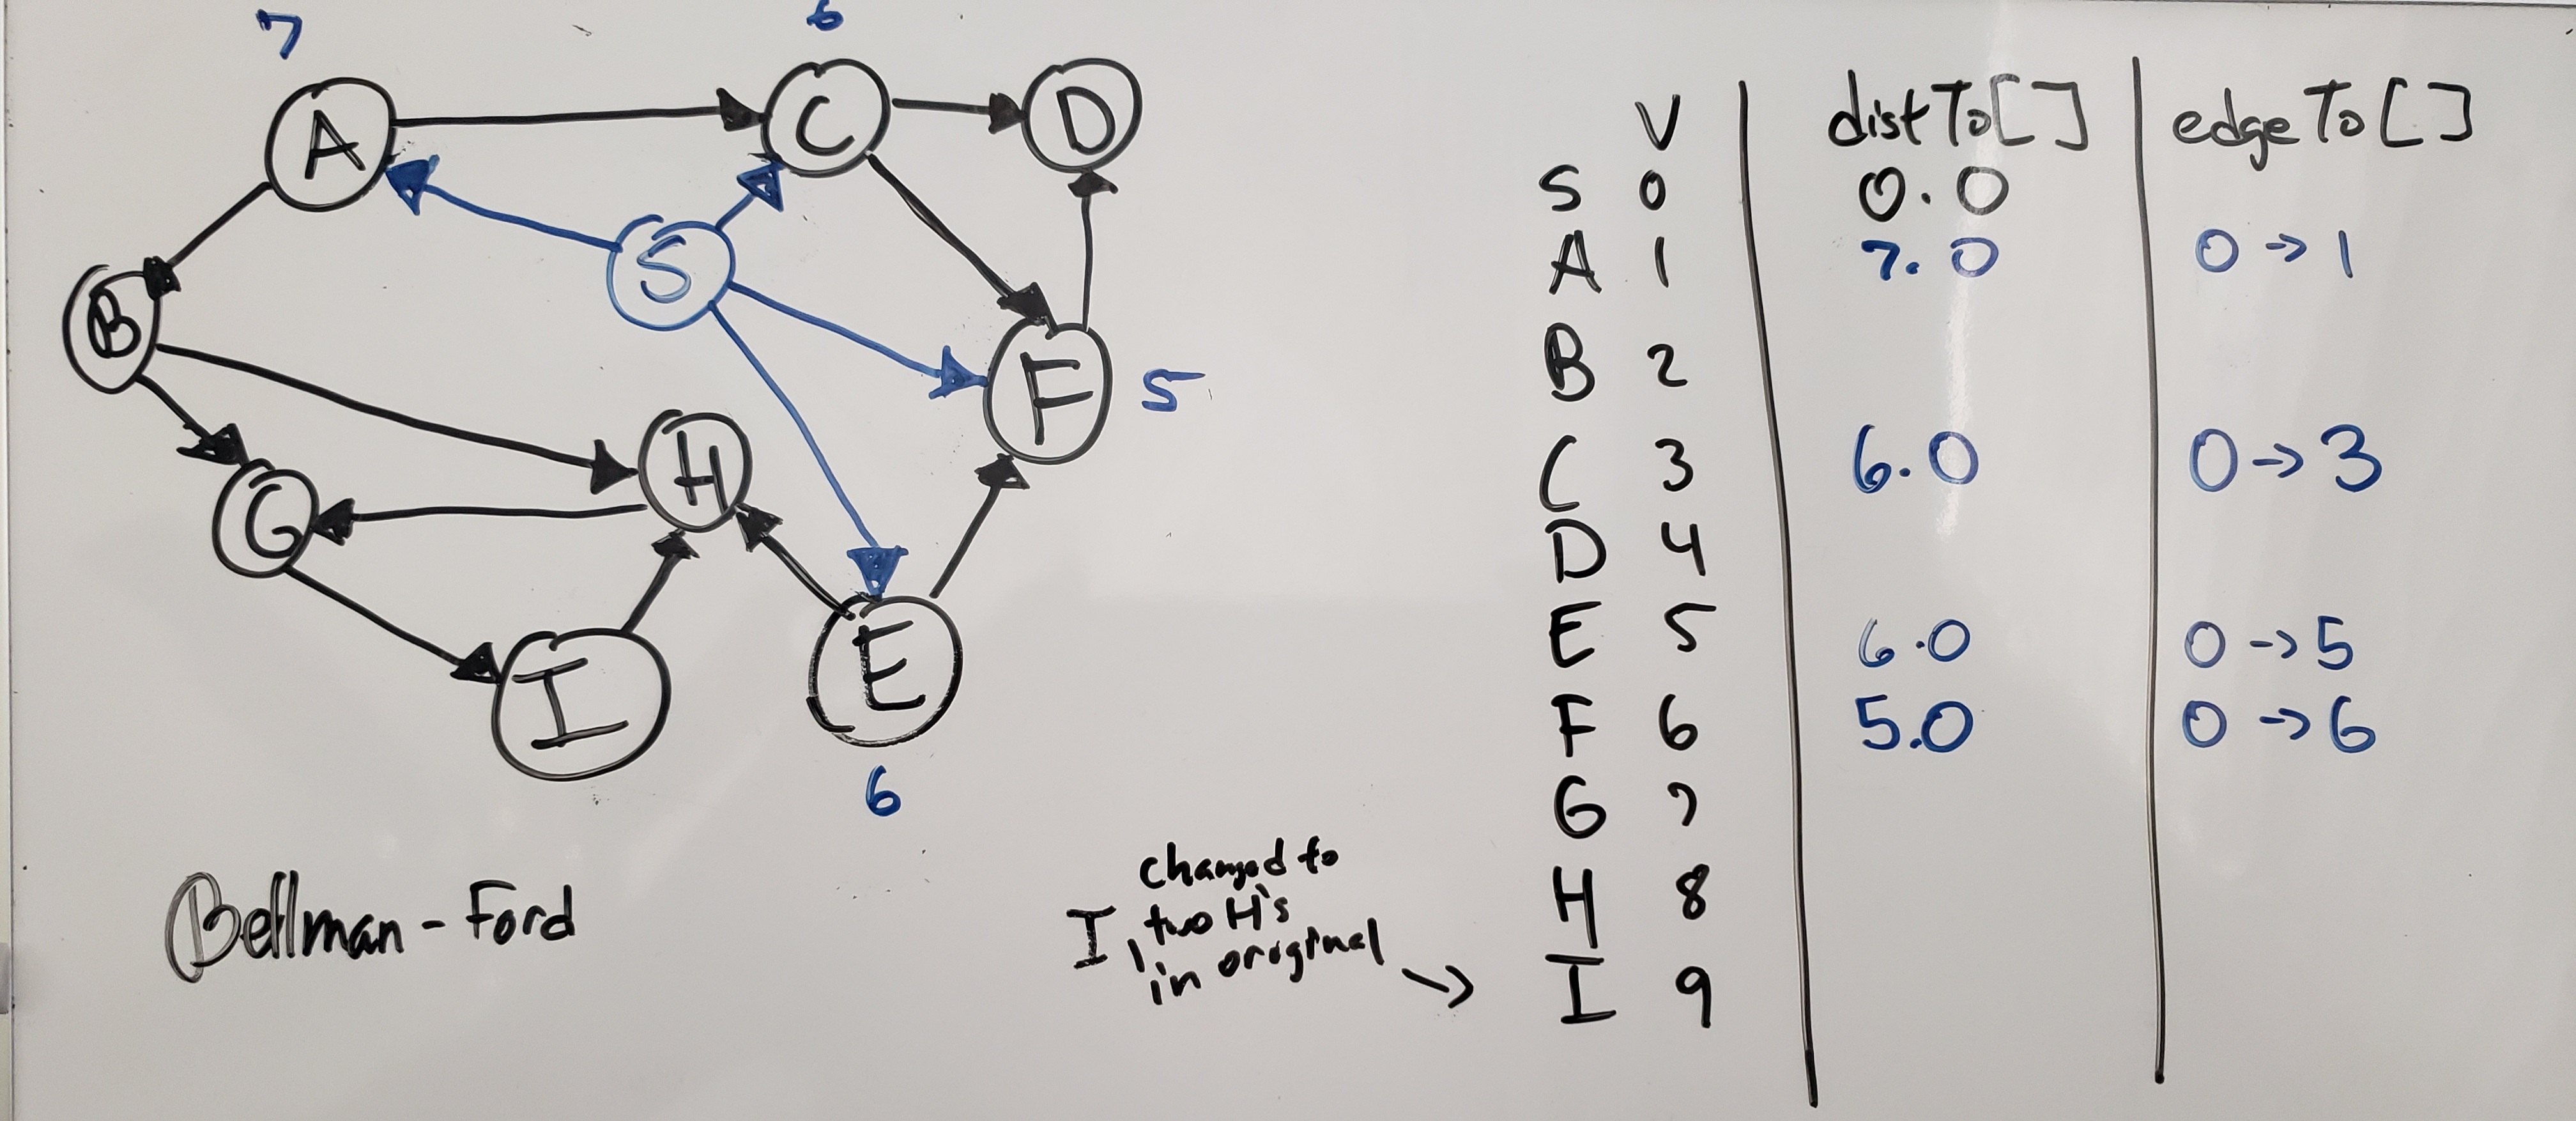 7
6
A
C
D
S
B
F
5
H
G
I
E
6
Bellman-Ford
I, changed to
two H's
in original →
V distTo[] edgeTo[]
S 0 0.0
A 1 7.0 0→1
B 2
C 3 6.0 0→3
D 4
E 5 6.0 0→5
F 6 5.0 0→6
G 7
H 8
I 9